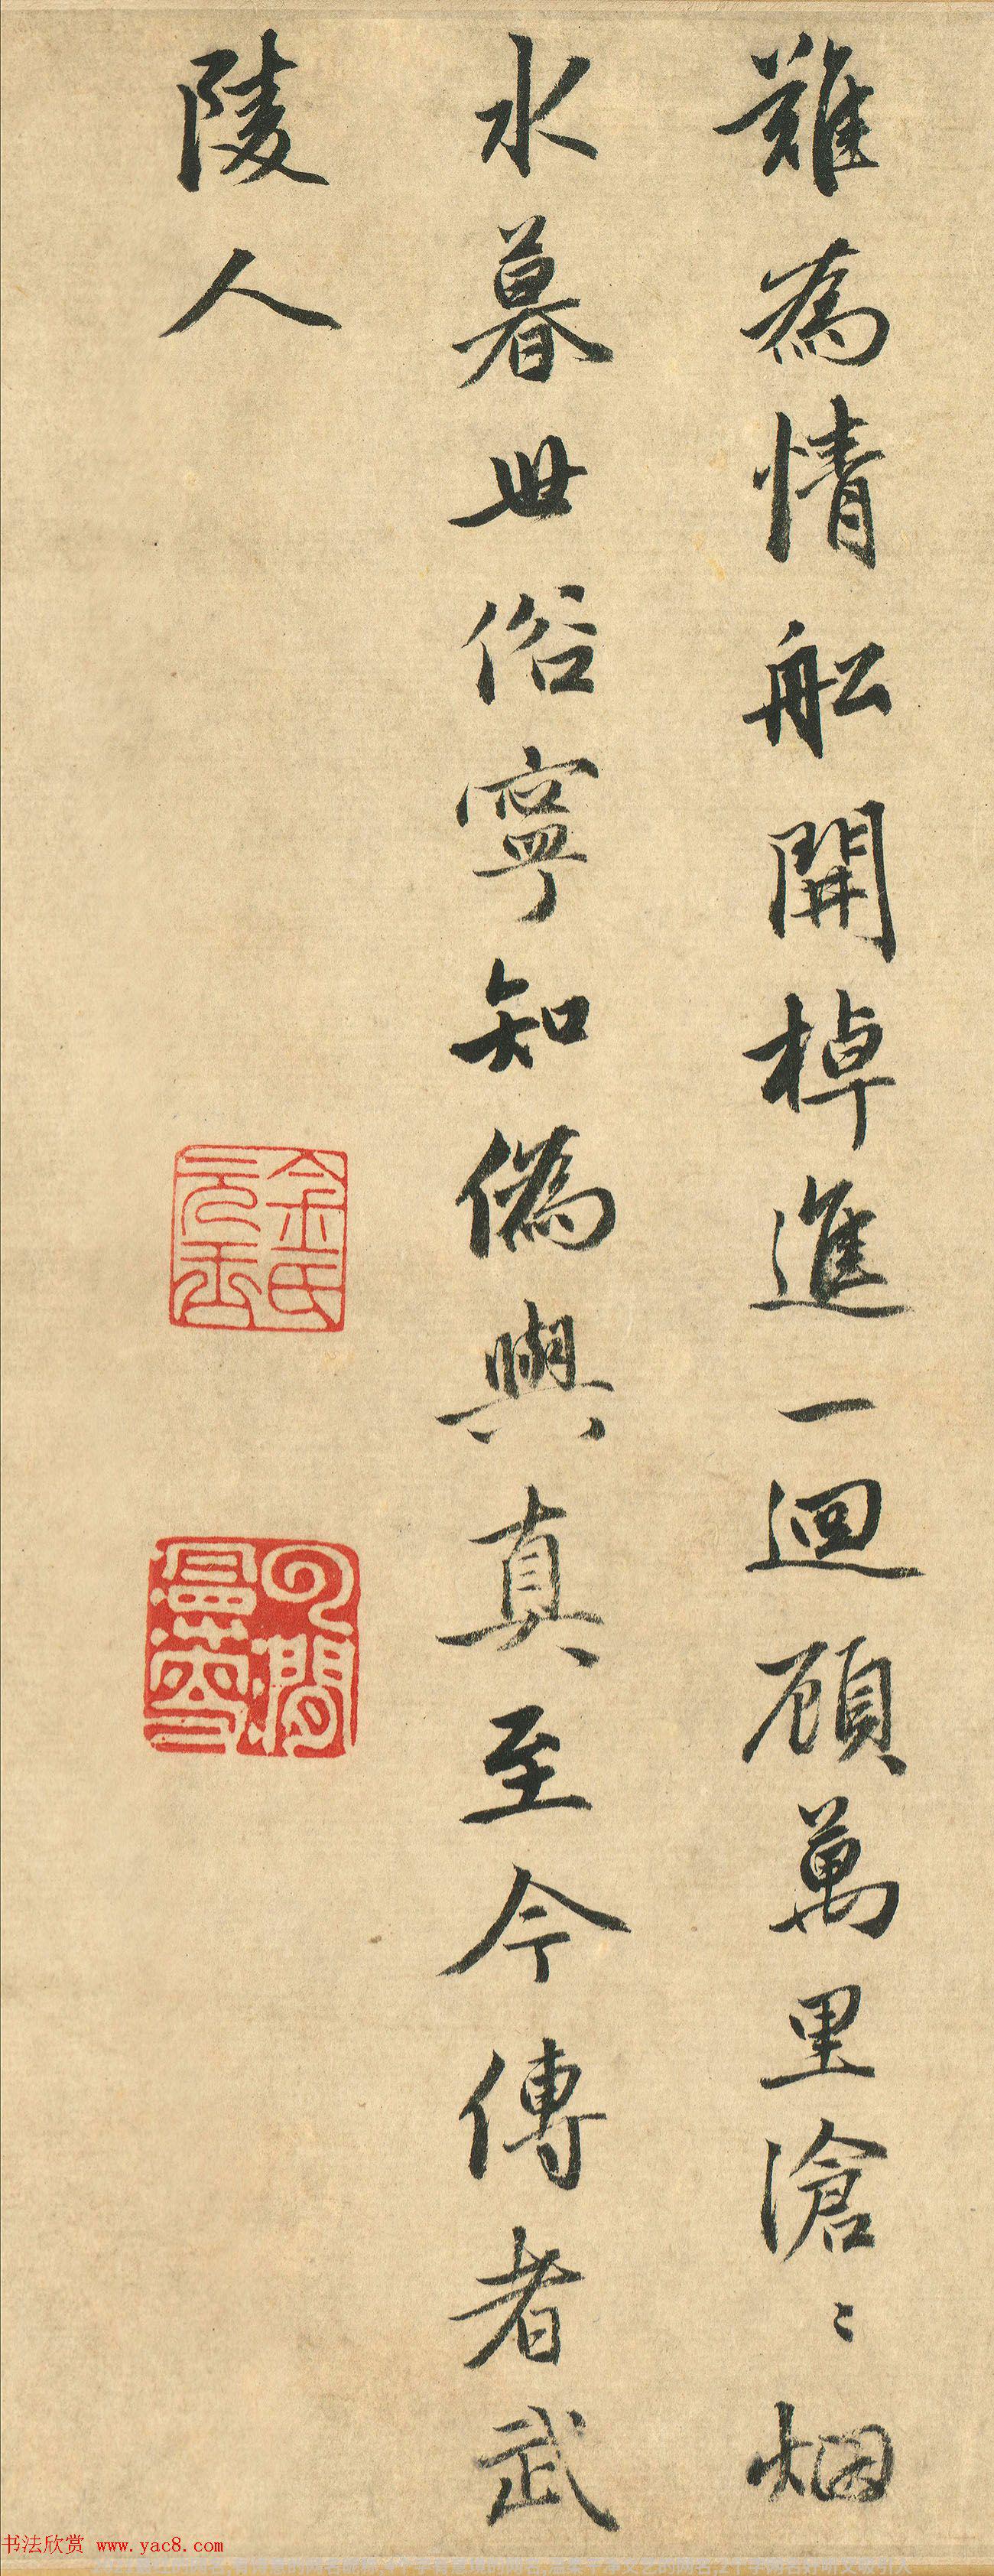 難為情舩開棹進一迴顧萬里滄〻烟
水暮世俗寧知僞與真至今傳者武
陵人
金氏元玉
书法欣赏 www.yac8.com